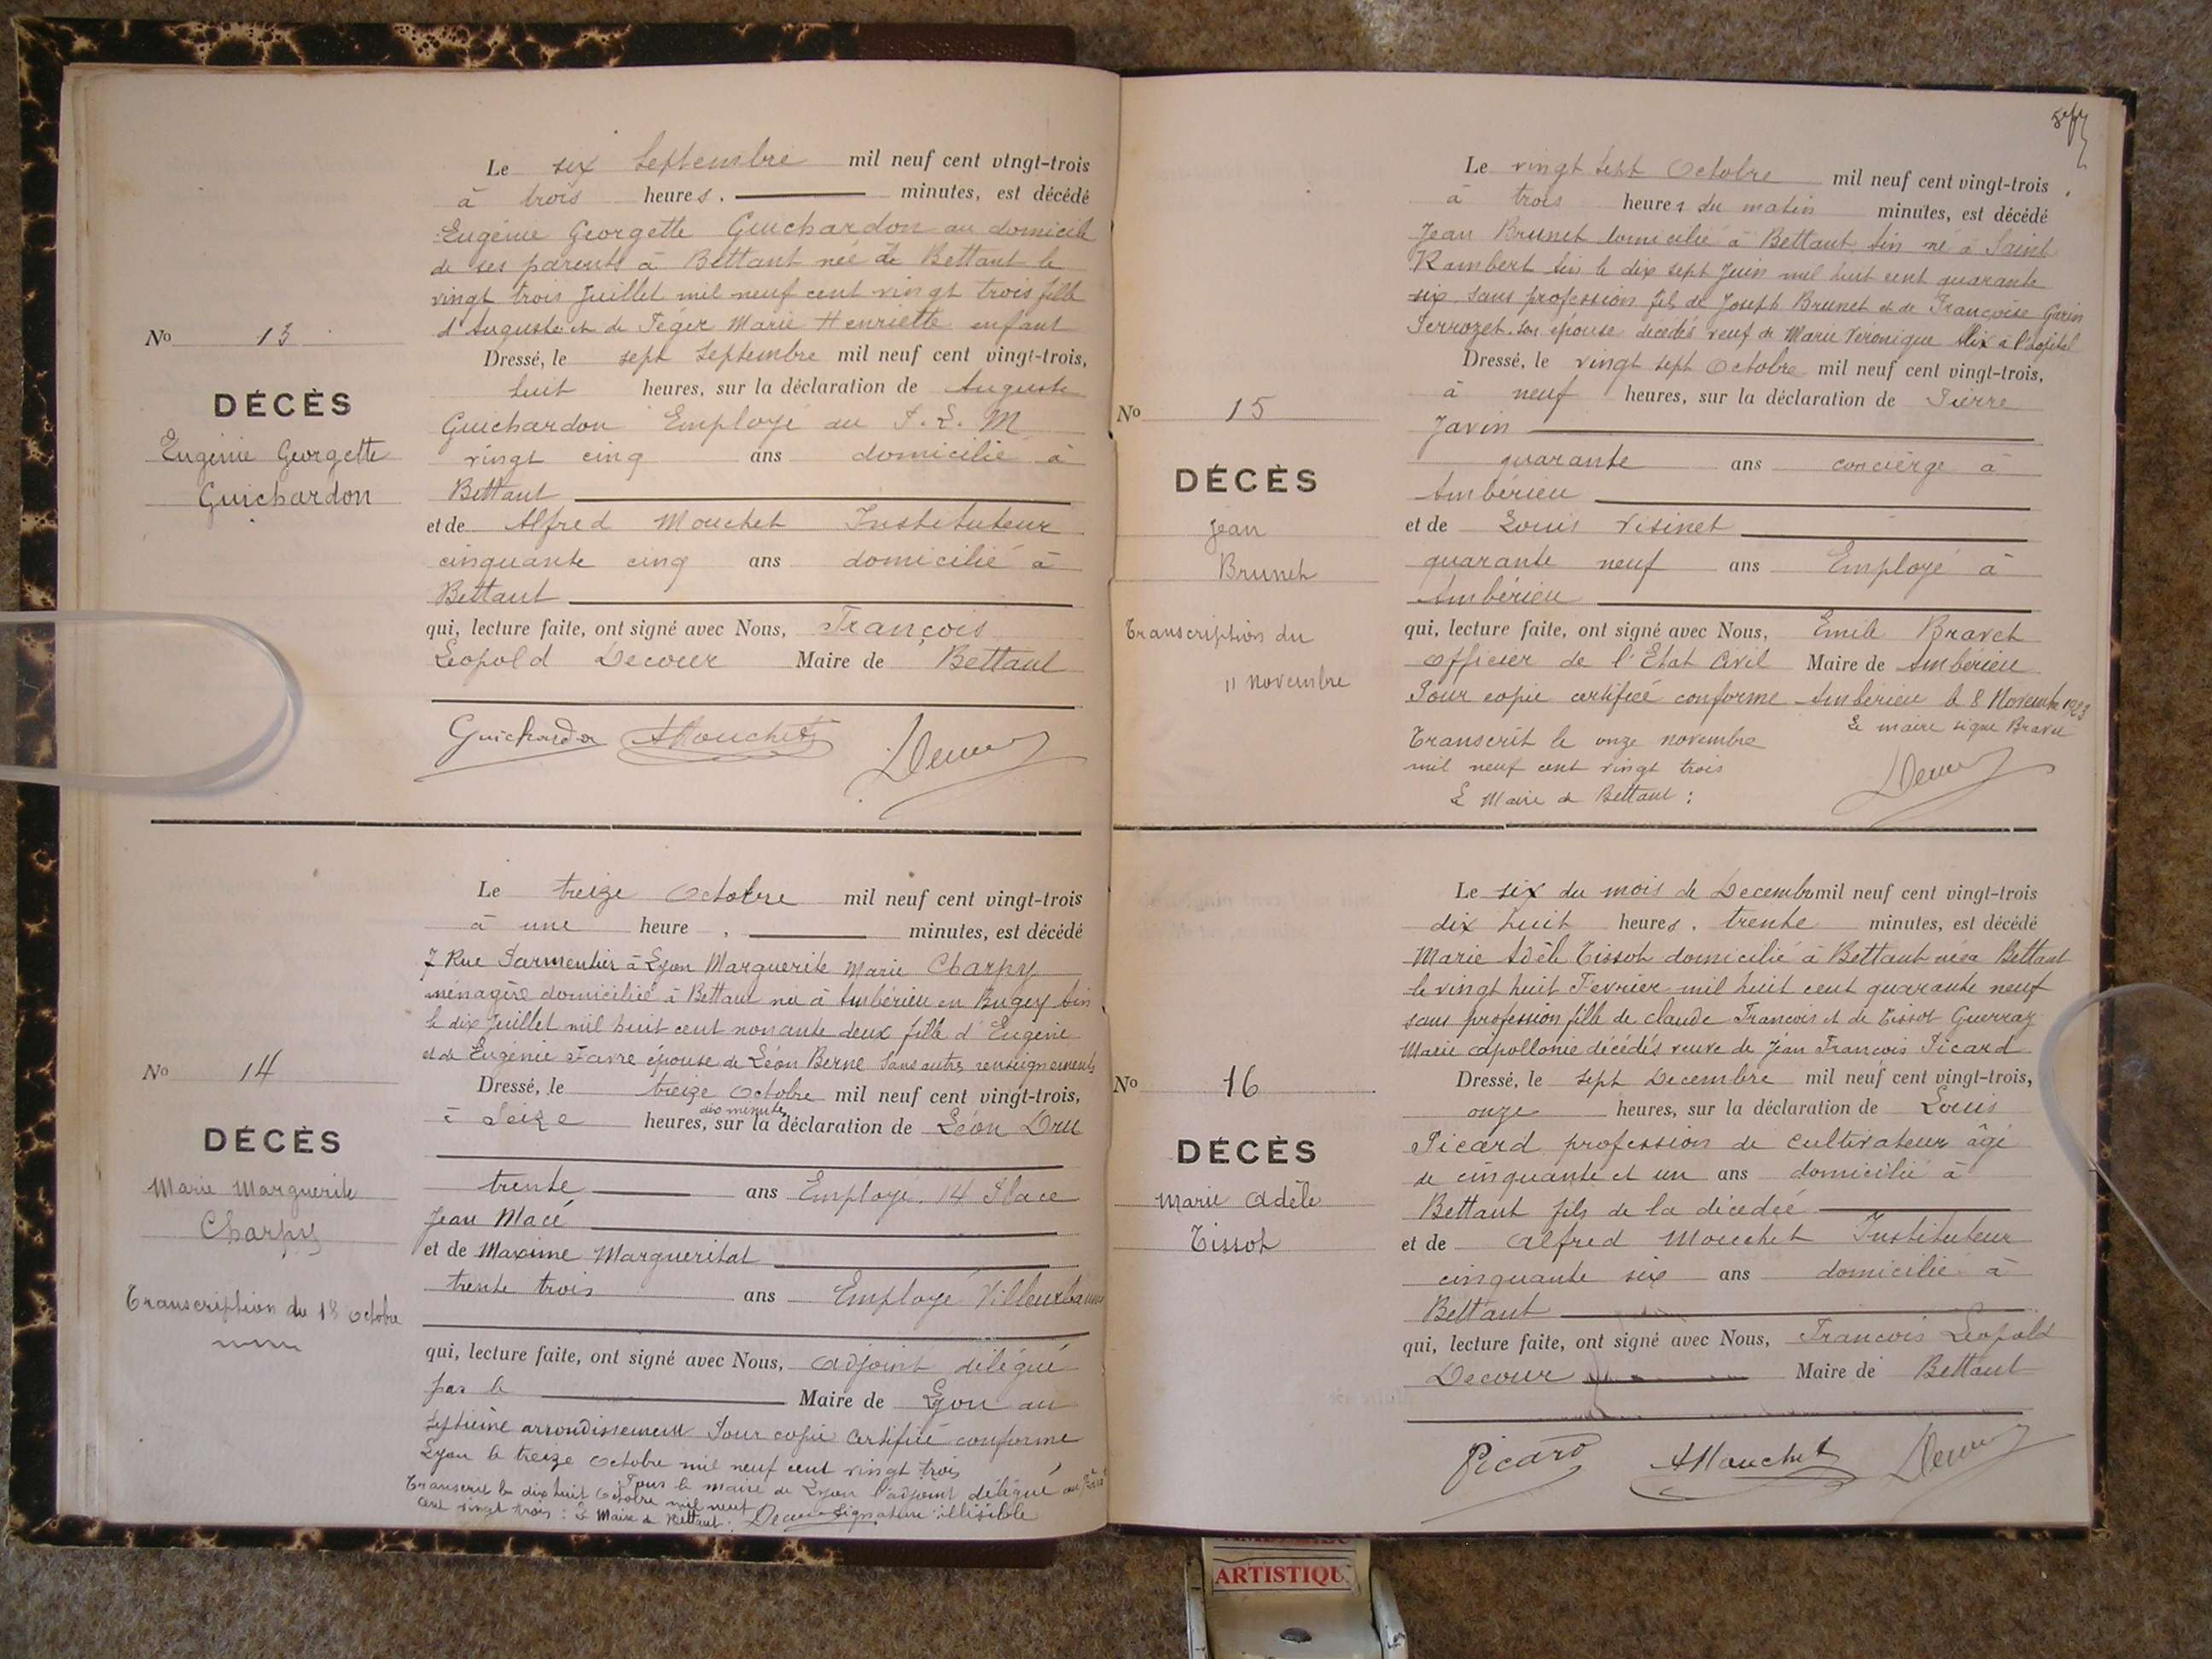 No 13
DÉCÈS
Eugénie Georgette
Guichardon
Le six Septembre mil neuf cent vingt-trois
à trois heures. minutes, est décédé
Eugénie Georgette Guichardon au domicile
de ses parents à Bettant née à Bettant le
vingt trois Juillet mil neuf cent vingt trois fille
d'Auguste et de Téger Marie Henriette enfant
Dressé, le sept Septembre mil neuf cent vingt-trois,
huit heures, sur la déclaration de Auguste
Guichardon Employé au P. L. M
vingt cinq ans domicilié à
Bettant
et de Alfred Mouchet Instituteur
cinquante cinq ans domicilié à
Bettant
qui, lecture faite, ont signé avec Nous, François
Léopold Decour Maire de Bettant
Guichardon AMouchet
No 14
DÉCÈS
Marie Marguerite
Charpy
Transcription du 18 octobre
Le treize Octobre mil neuf cent vingt-trois
à une heure . minutes, est décédé
7 Rue Parmentier à Lyon Marguerite Marie Charpy
ménagère domiciliée à Bettant née à Ambérieu en Bugey Ain
le dix Juillet mil huit cent nonante deux fille d'Eugène
et de Eugénie Favre épouse de Léon Berne Sans autres renseignements
Dressé, le treize Octobre mil neuf cent vingt-trois,
à Seize heures, dix minutes sur la déclaration de Léon Dru
trente ans Employé. 14 Place
Jean Macé
et de Maxime Margueritat
trente trois ans Employé Villeurbanne
qui, lecture faite, ont signé avec Nous, adjoint délégué
par le Maire de Lyon au
septième arrondissement Pour copie certifiée conforme
Lyon le treize octobre mil neuf cent vingt trois
Pour le maire de Lyon l'adjoint délégué au
Transcrit le dix huit Octobre mil neuf
cent vingt trois : Le Maire de Bettant : Signature illisible
sept
No 15
DÉCÈS
Jean
Brunet
Transcription du
11 novembre
Le vingt sept Octobre mil neuf cent vingt-trois
à trois heures du matin minutes, est décédé
Jean Brunet domicilié à Bettant Ain né à Saint
Rambert Ain le dix sept Juin mil huit cent quarante
six sans profession fils de Joseph Brunet et de Françoise Garin
Perrozet son épouse décédés veuf de Marie Véronique Alix à l'hôpital
Dressé, le vingt sept Octobre mil neuf cent vingt-trois,
à neuf heures, sur la déclaration de Pierre
Javin
quarante ans concierge à
Ambérieu
et de Louis Visinet
quarante neuf ans Employé à
Ambérieu
qui, lecture faite, ont signé avec Nous, Emile Bravet
officier de l'Etat Civil Maire de Ambérieu
Pour copie certifiée conforme Ambérieu le 8 Novembre 1923
Le maire signé Bravet
Transcrit le onze novembre
mil neuf cent vingt trois
Le Maire de Bettant :
No 16
DÉCÈS
Marie Adèle
Tissot
Le six du mois de Decembre mil neuf cent vingt-trois
dix huit heures. trente minutes, est décédé
Marie Adèle Tissot domicilié à Bettant née à Bettant
le vingt huit Fevrier mil huit cent quarante neuf
sans profession fille de Claude Francois et de Tissot Guerraz
Marie Apollonie décédés veuve de Jean Francois Picard
Dressé, le sept Decembre mil neuf cent vingt-trois,
onze heures, sur la déclaration de Louis
Picard profession de cultivateur âgé
de cinquante et un ans domicilié à
Bettant fils de la décédée
et de Alfred Mouchet Instituteur
cinquante six ans domicilié à
Bettant
qui, lecture faite, ont signé avec Nous, Francois Léopold
Decour Maire de Bettant
Picard AMouchet
ARTISTIQU